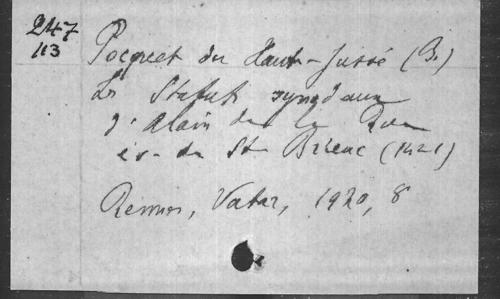 247
113
Pocquet du Haut-Jussé (B.)
Les Statuts synodaux
d'Alain de la Rue
év. de St Brieuc (1421)
Rennes, Vatar, 1920, 8